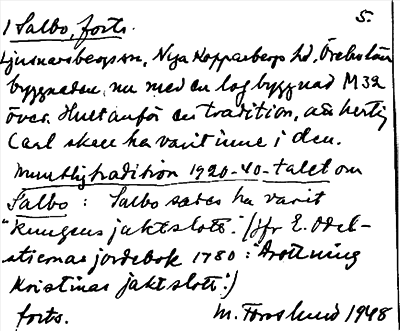 1 Salbo, forts. 5.
Ljusnarsbergs sn, Nya Kopparbergs hd, Örebro län
byggnaden, nu med en låg byggnad M 32
över. Hult anför en tradition, att hertig
Carl skall ha varit inne i den.
Muntlig tradition 1920-40-talet om
Salbo: Salbo sades ha varit
"Kungens jaktslott". (Jfr E. Odel-
stiernas jordebok 1780: "Drottning
Kristinas jaktslott".)
forts. M. Forslund 1948